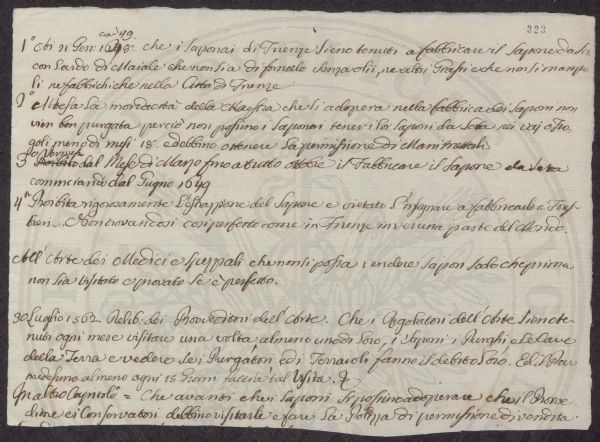 323
cioè 49.
1° Adi 21 Gen: 1648: che i Saponai di Firenze sieno tenuti a fabbricare il Sapone da Seta
con Lardo di Maiale che non sia di fornello senza olii, ne altri Grassi e che non si manipo
li ne fabbichi che nella Città di Firenze
2° Attesa la mordacità della Maestra che si adopera nella fabbrica dei Saponi non
vien ben purgata perciò non possino i Saponai tener il Sapone da Seta nei
goli meno di mesi 18: e debbino ottenere la permissione di
3° dal Mese di Marzo fino a tutto ottobre il Fabbricare il Sapone da Seta
cominciando dal Giugno 1649
4° Proibita rigorosamente l'estrazione del Sapone e vietato l'insegnare a fabbricarlo a Fores
tieri. Non trovandosi così perfetto come in Firenze in veruna parte del Mondo.
All'Arte dei Medici e Speziali che non si possa vendere Sapon Sodo che prima
non sia visitato e provato se è perfetto.
30 Luglio 1562. Delib. dei Provveditori dell'Arte. Che i Regolatori dell'Arte sieno te-
nuti ogni mese visitare una volta almeno uno di Loro, i Saponi, i Purghi e le Lane
della Terra e vedere se i Purgatori ed i Terraioli fanno il debito Loro. Ed il
medesimo almeno ogni 15 Giorni faccia tal Visita.
In altro Capitolo = Che avanti che i Saponi si possino adoperare che il Prove
ditore e i Conservatori debbino visitarli e fare la Polizza di permissione di vendita.